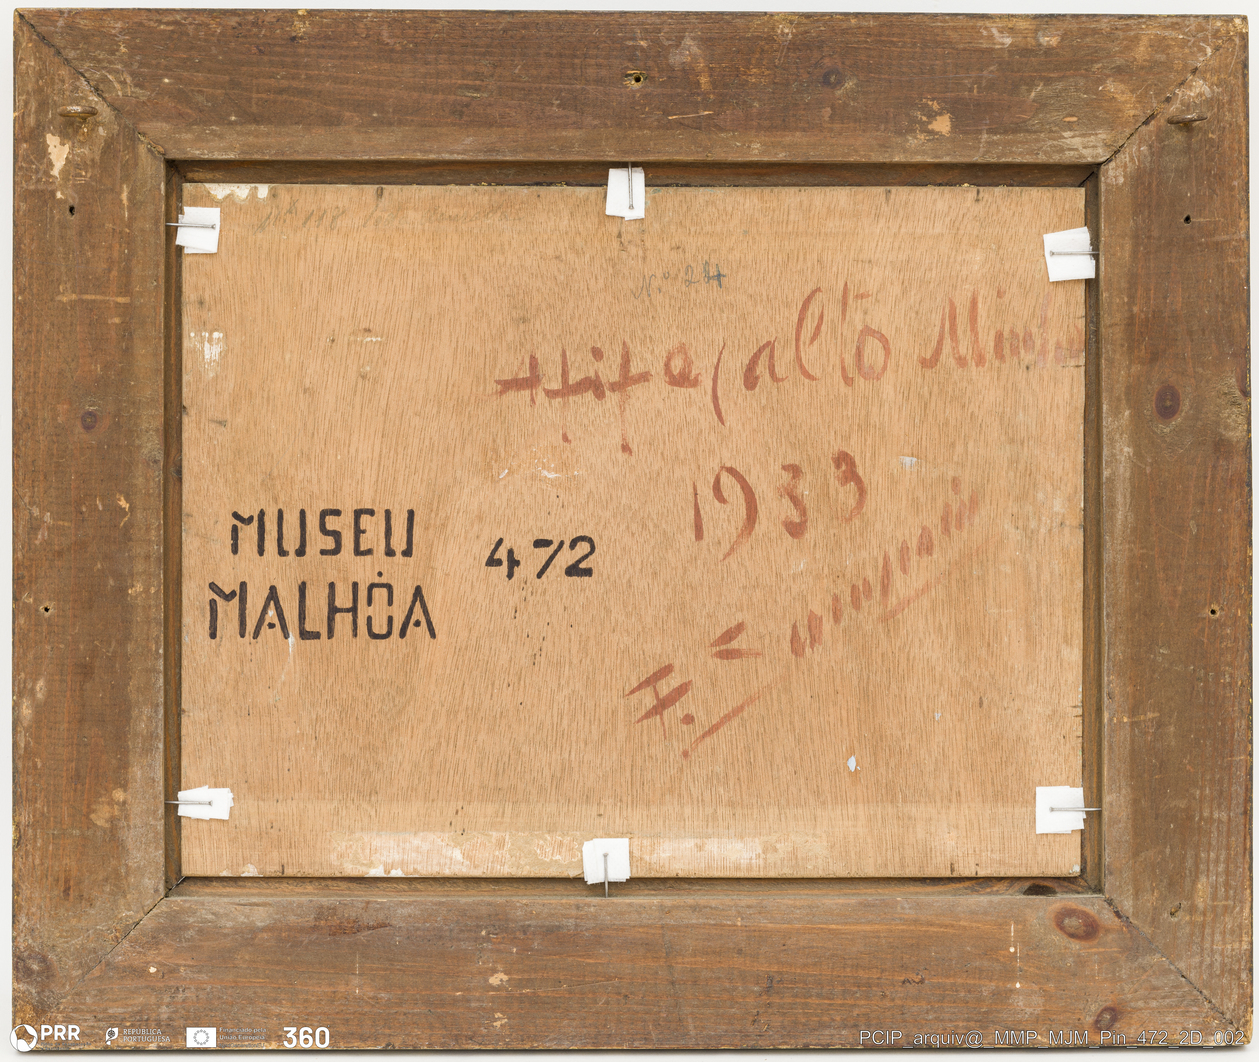 Nº 24
alto Minho
1933
MUSEU
MALHÔA
472
PRR
REPÚBLICA
PORTUGUESA
Financiado pela
União Europeia
360
PCIP_arquiv@_MMP_MJM_Pin_472_2D_002